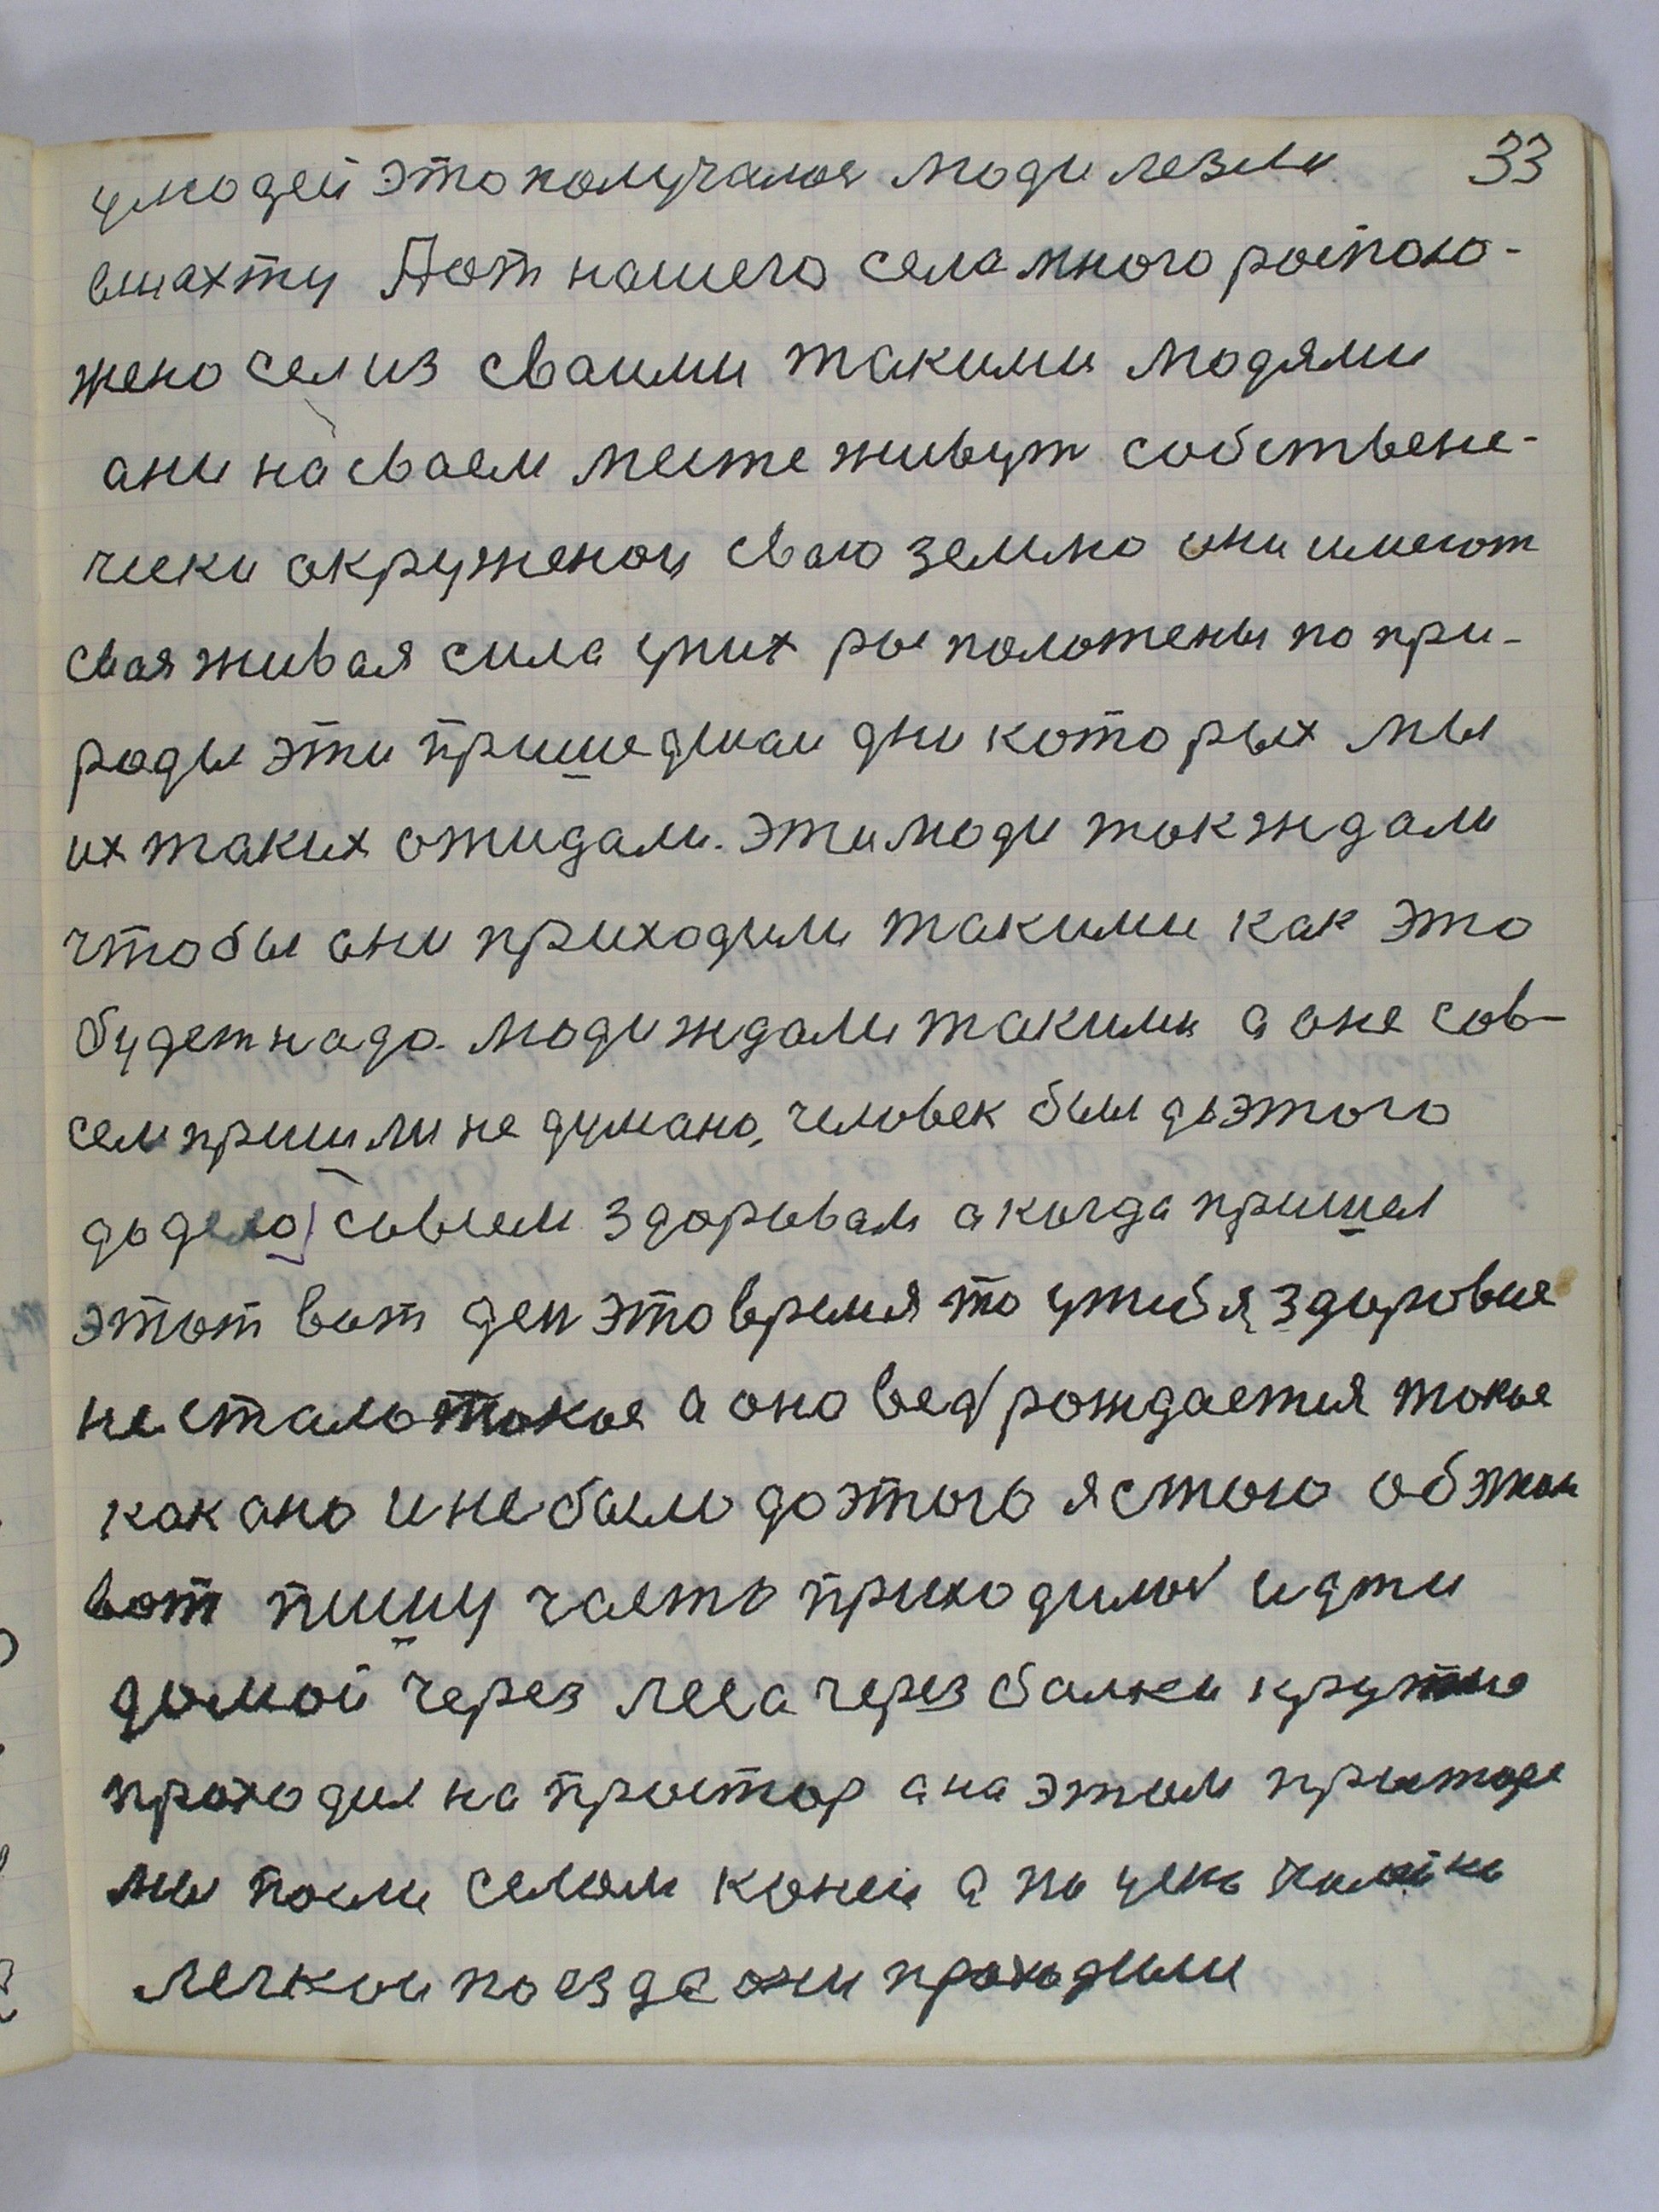 33
улюдей это получалося люди лезли
вшахту Пот нашего села много росполо-
жено сел из сваими такими людями
ани на сваем месте живут собствене-
чиски акруженои сваю землю они имеют
свая живая сила уних росположены по при-
роды эти пришедшаи дни которых мы
их таких ожидали. Эти люди так ждали
чтобы они приходили такими как это
будет надо. люди ждали такими а оне сов-
сем пришли не думано, человек был дэтого
до дело совсем здоровам а когда пришел
этот вот ден это время то утибя здоровие
не стало такое а оно вед рождается токое
как ано и не было до этого я стою об этом
вот пишу часто приходилося идти
домой через леса через балки крутые
проходил на простор а на этом просторе
мы посли селом коней а по
легкои поезда они проходили